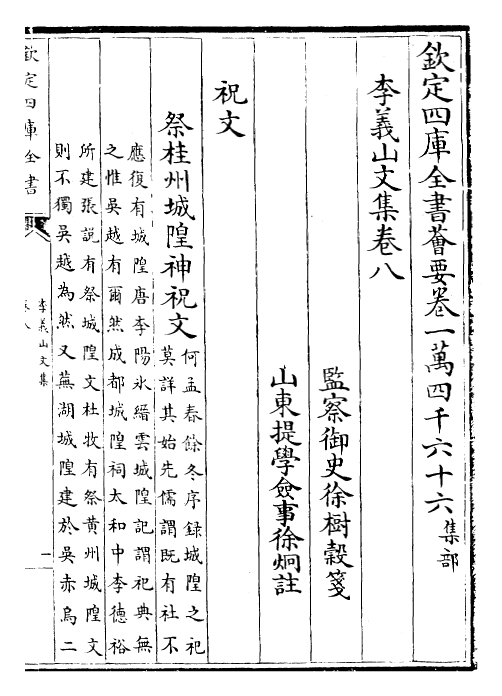 欽定四庫全書薈要卷一萬四千六十六集部
李義山文集卷八
監察御史徐樹穀箋
山東提學僉事徐炯註
祝文
祭桂州城隍神祝文何孟春餘冬序録城隍之祀
莫詳其始先儒謂既有社不
應復有城隍唐李陽氷縉雲城隍記謂祀典無
之惟吳越有爾然成都城隍祠太和中李德裕
所建張說有祭城隍文杜牧有祭黄州城隍文
則不獨吳越為然又蕪湖城隍建於吳赤烏二
欽定四庫全書
李義山文集
卷八
一